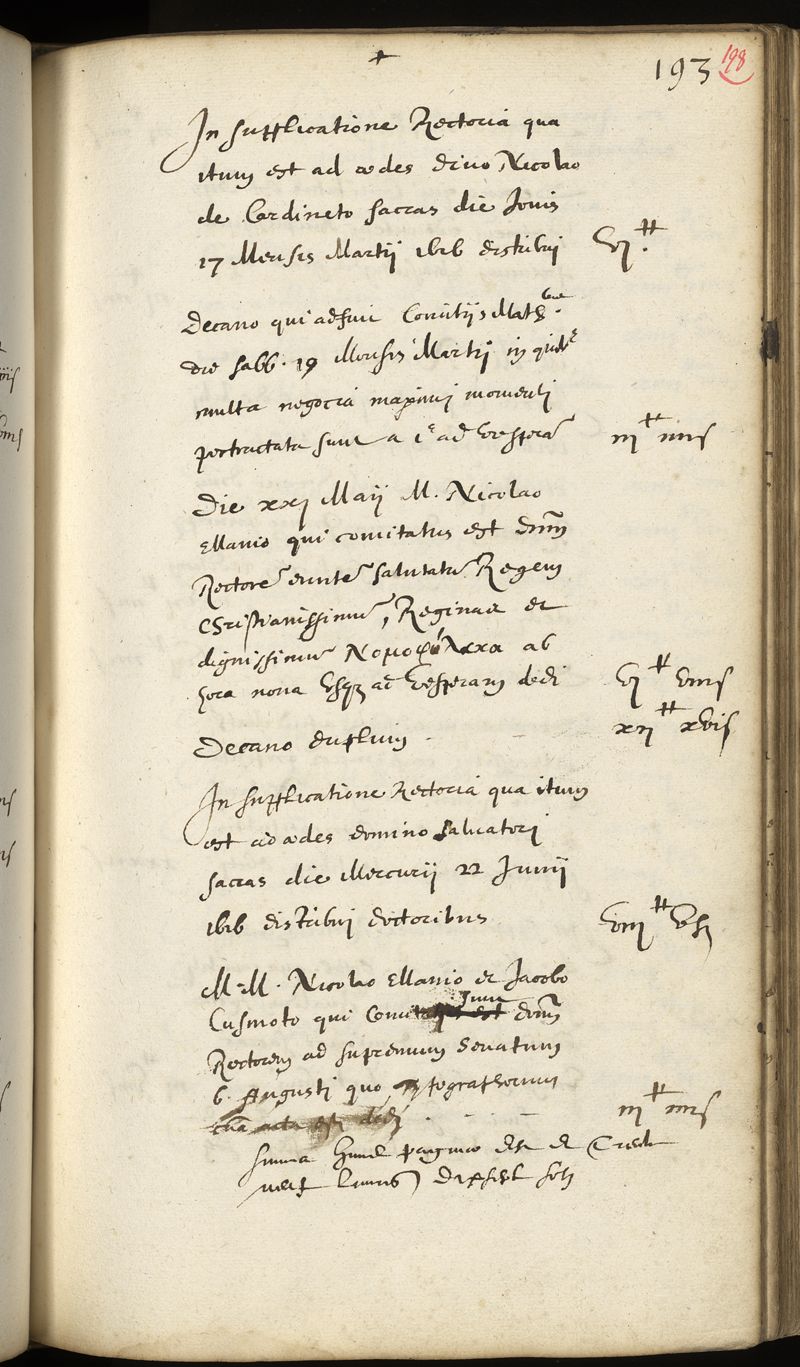 193 198
In supplicatione Rectoria qua
itum est ad ædes divo Nicolao
de Cardineto sacras die Jovis
17 Mensis Martii ibid distribui vj ℔.
Decano qui adfui Comitiis Math
die sabb. 19 Mensis Martij in quib
multa negocia maximi momenti
pertractata sunt a 1ª ad Vesperā iij ℔ iiij s
Die xxj Maij M. Nicolao
Ellanio qui comitatus est dnm
Rectorē euntē salutatū Regem
Christianissimū, Reginam et
dignissimū Νομοφύλακα ab
hora nona usq ad Vesperam dedi vj ℔ viij s
Decano duplum xij ℔ xvj s
In supplicatione Rectoria qua itum
est ad ædes domino salvatori
sacras die Mercurij 22 Junij
ibid distribui doctoribus
M.M. Nicolao Ellanio et Jacobo
Cusinoto qui dnm
Rectorem ad supremum Senatum
6. Augusti quo typographorum
iij ℔ iiij s
summa paginæ